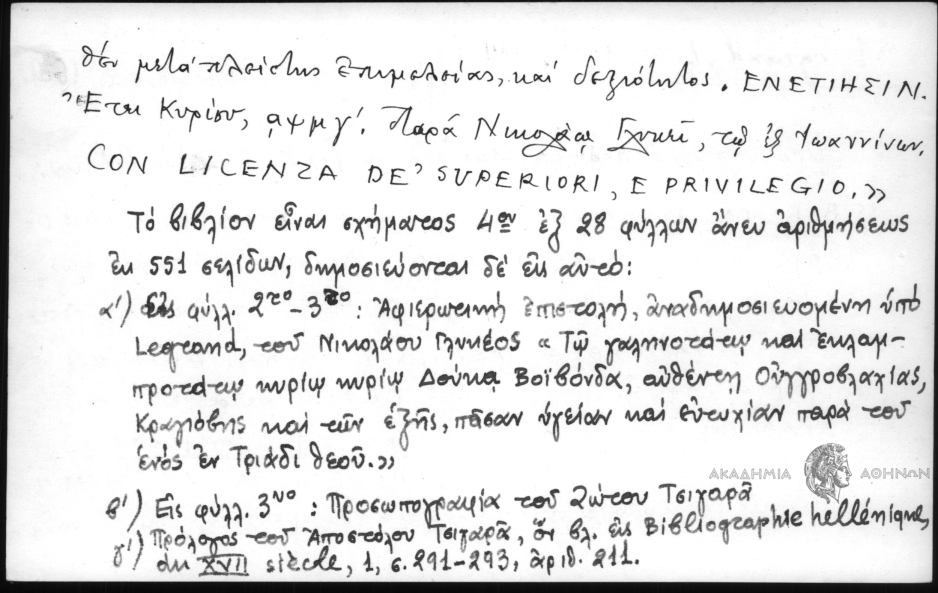 θὲν μετὰ πλείστης ἐπιμελείας, καὶ δεξιότητος. ΕΝΕΤΙΗΣΙΝ.
Ἔτει Κυρίου, ͵αψμγʹ. Παρὰ Νικολάῳ Γλυκεῖ, τῷ ἐξ Ἰωαννίνων.
CON LICENZA DE' SUPERIORI, E PRIVILEGIO.»
Τὸ βιβλίον εἶναι σχήματος 4ον ἐξ 28 φύλλων ἄνευ ἀριθμήσεως
ἐκ 551 σελίδων, δημοσιεύονται δὲ εἰς αὐτό:
α') Εἰς φύλλ. 2το - 3το : Ἀφιερωτικὴ ἐπιστολή, ἀναδημοσιευομένη ὑπὸ
Legrand, τοῦ Νικολάου Γλυκέος «Τῷ γαληνοτάτῳ καὶ ἐκλαμ-
προτάτῳ κυρίῳ κυρίῳ Δούκᾳ Βοϊβόνδα, αὐθέντῃ Οὐγγροβλαχίας,
Κραγιόβης καὶ τῶν ἑξῆς, πᾶσαν ὑγείαν καὶ εὐτυχίαν παρὰ τοῦ
ἑνὸς ἐν Τριάδι θεοῦ.»
ΑΚΑΔΗΜΙΑ ΑΘΗΝΩΝ
β') Εἰς φύλλ. 3νο : Προσωπογραφία τοῦ Ζώτου Τσιγαρᾶ
γ') Πρόλογος τοῦ Ἀποστόλου Τσιγαρᾶ, ὃν βλ. εἰς Bibliographie hellénique,
du XVII siècle, 1, σ. 291-293, ἀριθ. 211.